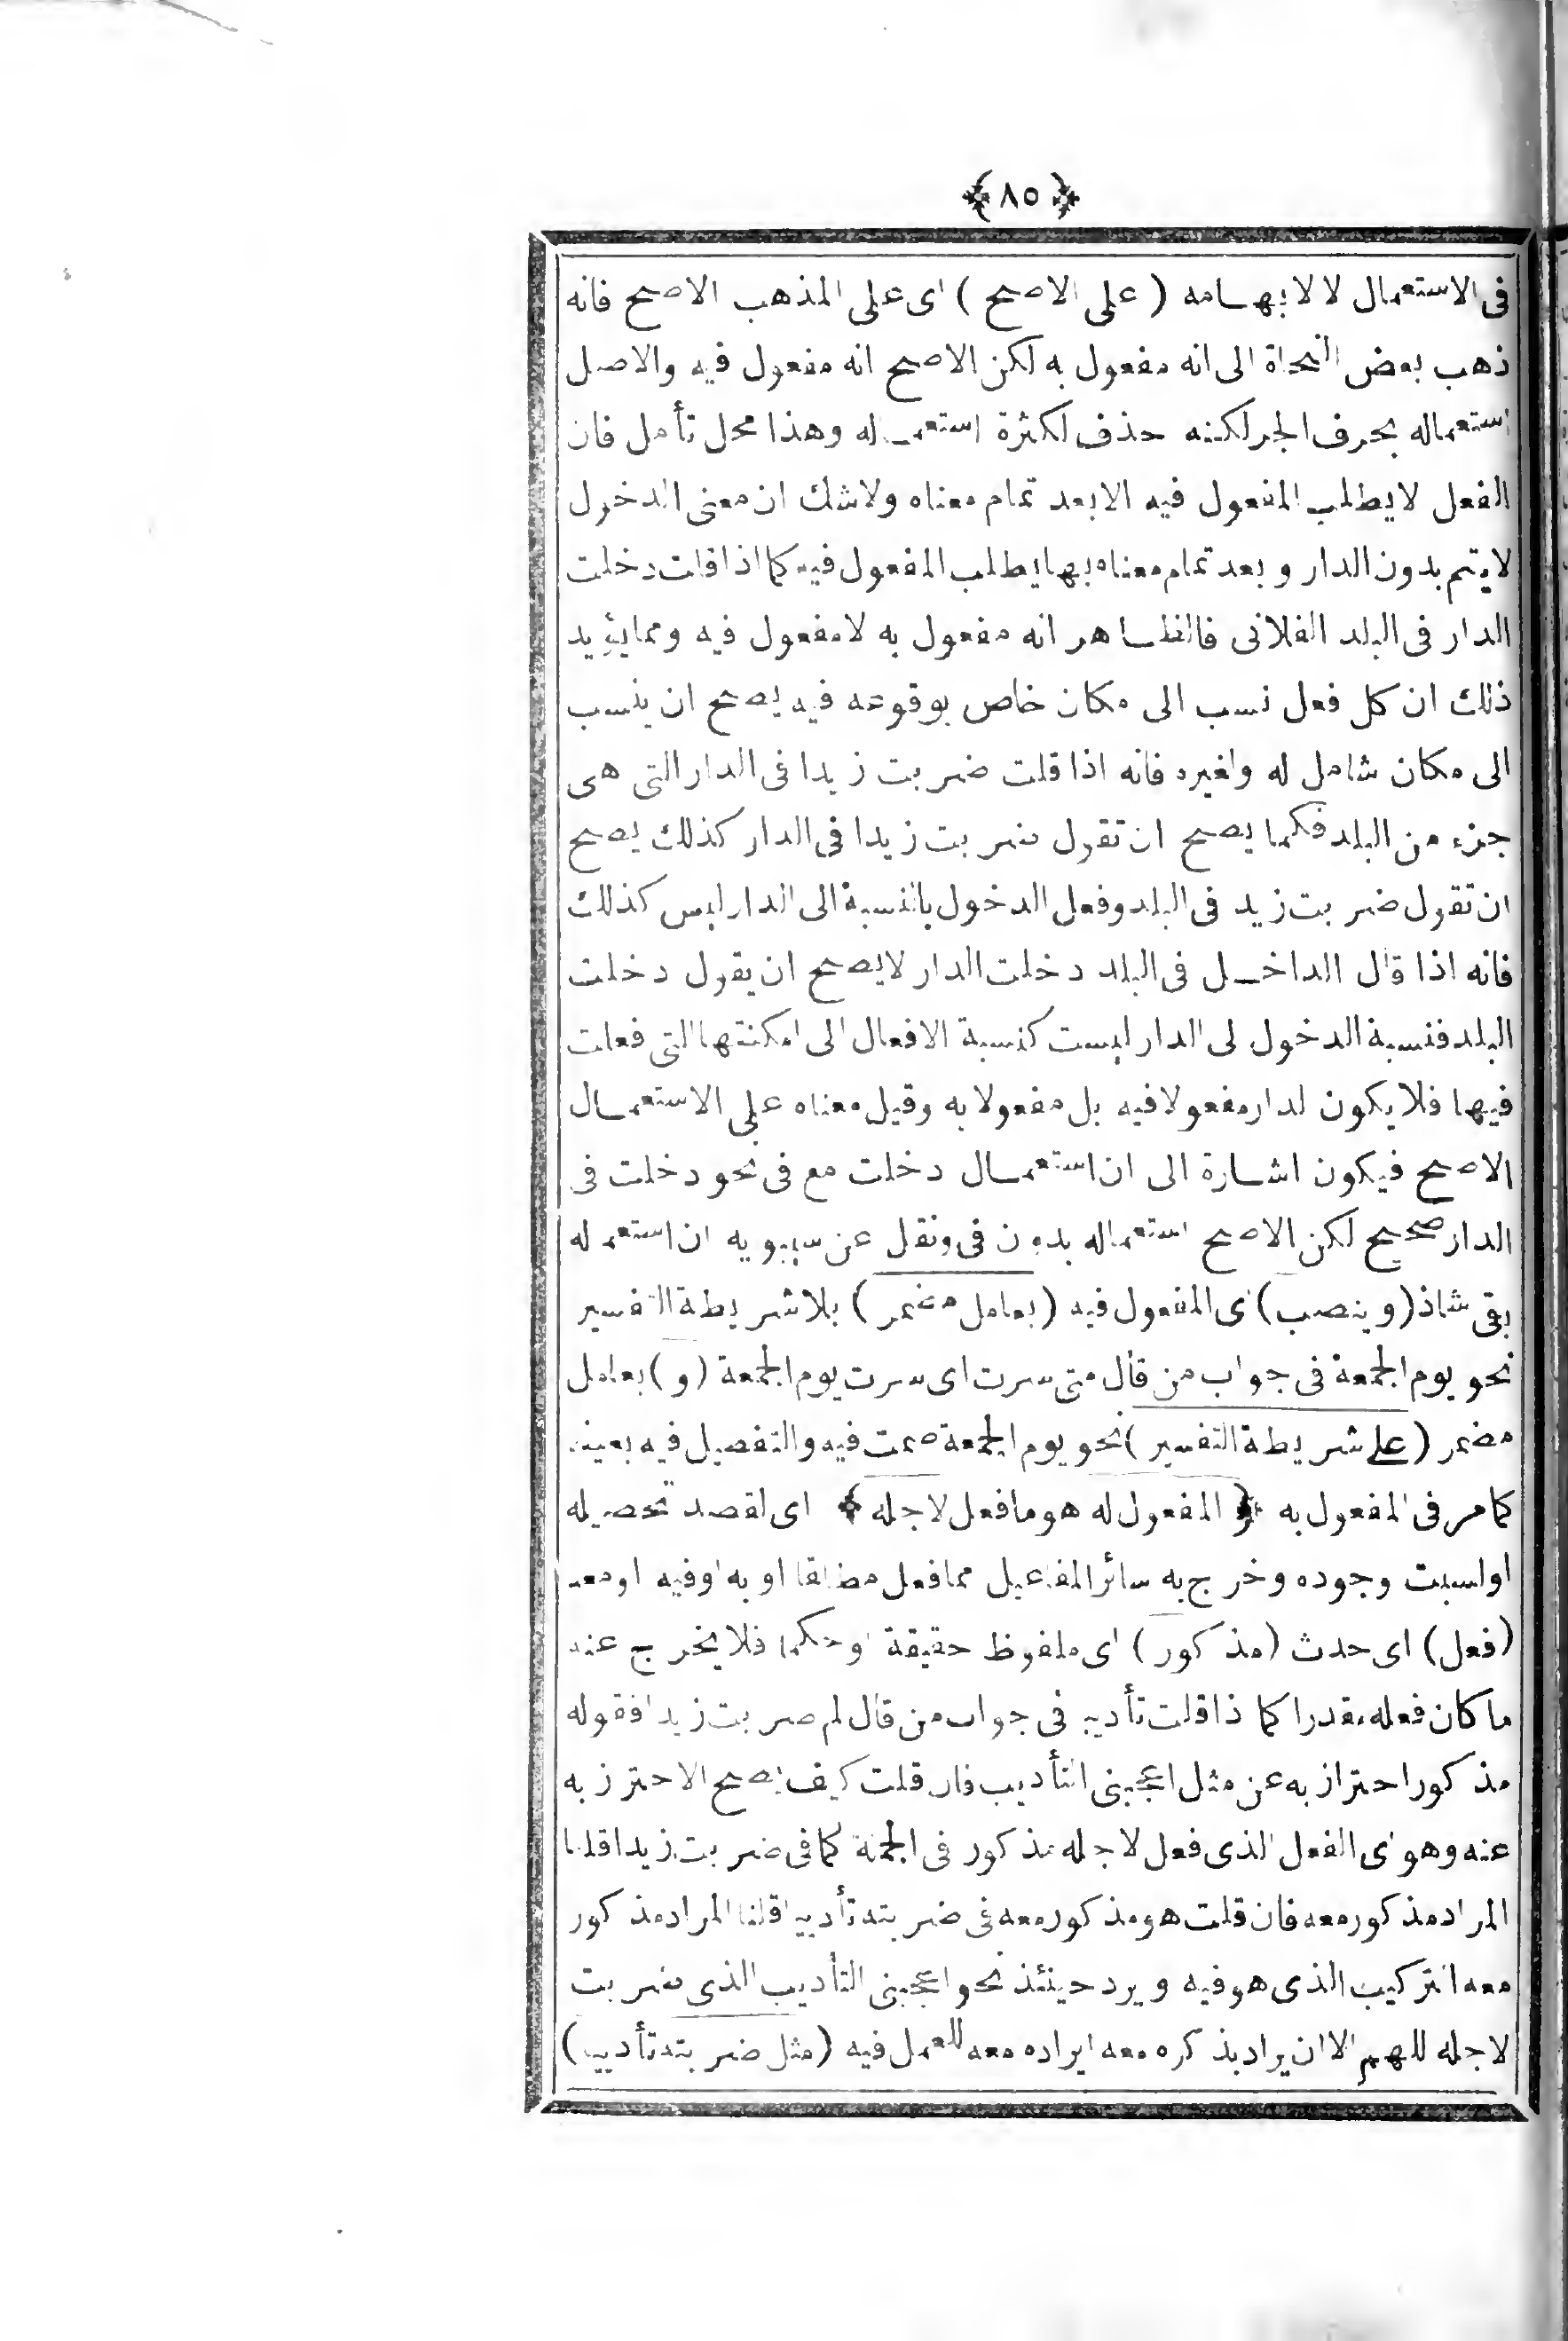 ﴿ ٨٥ ﴾
فى الاستعمال لا لابهامه ( على الاصح ) اى على المذهب الاصح فانه
ذهب بعض النحاة الى انه مفعول به لكن الاصح انه مفعول فيه والاصل
استعماله بحرف الجر لكنه حذف لكثرة استعماله وهذا محل تأمل فان
الفعل لا يطلب المفعول فيه الا بعد تمام معناه ولاشك ان معنى الدخول
لا يتم بدون الدار و بعد تمام معناه بها يطلب المفعول فيه كما اذا قلت دخلت
الدار فى البلد الفلانى فالظاهر انه مفعول به لا مفعول فيه ومما يؤيد
ذلك ان كل فعل نسب الى مكان خاص بوقوعه فيه يصح ان ينسب
الى مكان شامل له ولغيره فانه اذا قلت ضربت زيدا فى الدار التى هى
جزء من البلد فكما يصح ان تقول ضربت زيدا فى الدار كذلك يصح
ان تقول ضربت زيد فى البلد وفعل الدخول بالنسبة الى الدار ليس كذلك
فانه اذا قال الداخل فى البلد دخلت الدار لا يصح ان يقول دخلت
البلد فنسبة الدخول لى الدار ليست كنسبة الافعال الى امكنتها التى فعلت
فيها فلا يكون لدار مفعولا فيه بل مفعولا به وقيل معناه على الاستعمال
الاصح فيكون اشارة الى ان استعمال دخلت مع فى نحو دخلت فى
الدار صحيح لكن الاصح استعماله بدون فى ونقل عن سيبويه ان استعماله
بفى شاذ (و ينصب) اى المفعول فيه (بعامل مضمر ) بلا شريطة التفسير
نحو يوم الجمعة فى جواب من قال متى سرت اى سرت يوم الجمعة (و) بعامل
مضمر (على شريطة التفسير) نحو يوم الجمعة صمت فيه والتفصيل فيه بعينه
كما مر فى المفعول به ﴿ المفعول له هو ما فعل لاجله ﴾ اى لقصد تحصيله
او لسبب وجوده وخرج به سائر المفاعيل مما فعل مطلقا او به او فيه او معه
(فعل) اى حدث (مذكور) اى ملفوظ حقيقة او حكما فلا يخرج عنه
ما كان فعله مقدرا كما ذا قلت تأديبا فى جواب من قال لم ضربت زيدا فقوله
مذكور احتراز به عن مثل اعجبنى التأديب فان قلت كيف يصح الاحتراز به
عنه وهو اى الفعل الذى فعل لاجله مذكور فى الجملة كما فى ضربت زيدا قلنا
المراد مذكور معه فان قلت هو مذكور معه فى ضربته تأديبا قلنا المراد مذكور
معه التركيب الذى هو فيه و يرد حينئذ نحو اعجبنى التأديب الذى ضربت
لاجله اللهم الا ان يراد بذكره معه ايراده معه للعمل فيه (مثل ضربته تأديبا)